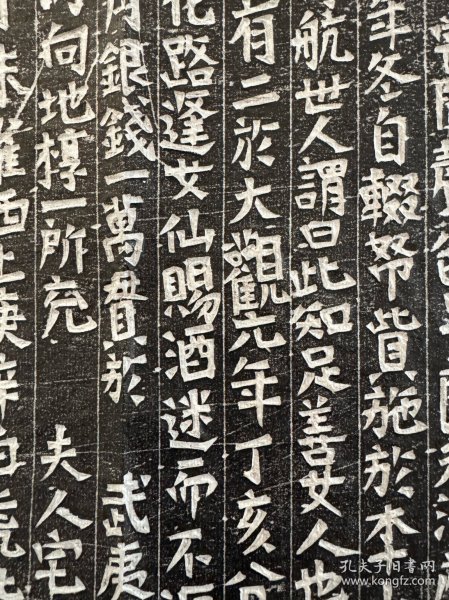 年冬自輟帑貲施於本
航世人謂曰此知足善女人也
有二於大觀元年丁亥
花路逢女仙賜酒迷而不返
銀錢一萬貫於 武夷
向地 一所充 夫人宅
西止庚辛
孔夫子旧书网
www.kongfz.com